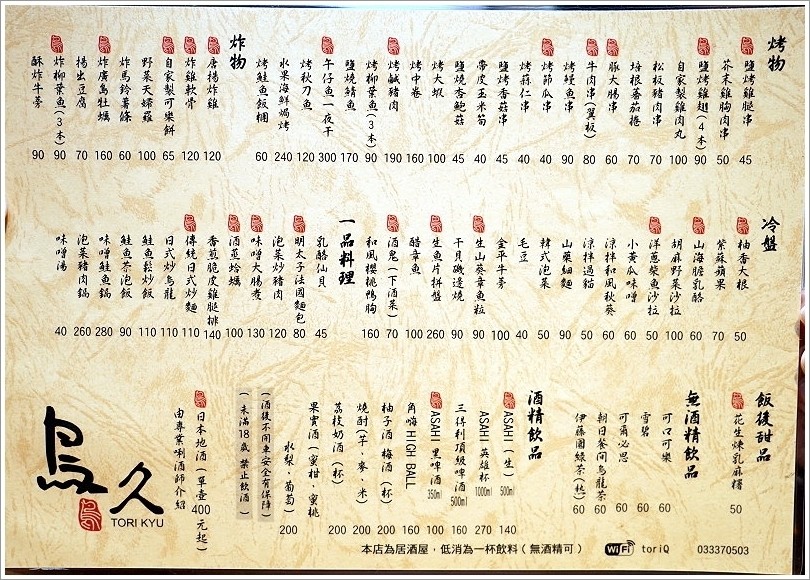 烤物
鹽烤雞腿串 45
芥末雞胸肉串 50
鹽烤雞翅(4本) 90
自家製雞肉丸 100
松板豬肉串 70
培根蕃茄捲 70
豚大腸串 60
牛肉串(翼板) 80
烤鰻魚串 90
烤節瓜串 40
烤蒜仁串 40
鹽烤香菇串 45
帶皮玉米筍 40
鹽燒杏鮑菇 45
烤大蝦 100
烤中卷 160
烤鹹豬肉 190
烤柳葉魚(3本) 90
鹽燒鯖魚 170
午仔魚一夜干 300
烤秋刀魚 120
水果海鮮焗烤 240
烤鮭魚飯糰 60
炸物
唐揚炸雞 120
炸雞軟骨 120
自家製可樂餅 65
野菜天婦羅 100
炸馬鈴薯條 60
炸廣島牡蠣 160
揚出豆腐 70
炸柳葉魚(3本) 90
酥炸牛蒡 90
冷盤
柚香大根 50
紫蘇蘋果 70
山海膽乳酪 60
胡麻野菜沙拉 100
洋蔥柴魚沙拉 50
小黃瓜味噌 60
涼拌和風秋葵 60
涼拌過貓 50
山藥細麵 90
韓式泡菜 50
毛豆 40
金平牛蒡 90
生山葵章魚粒 90
干貝磯邊燒 90
生魚片拼盤 260
醋章魚 100
酒鬼(下酒菜) 70
和風櫻桃鴨胸 160
一品料理
乳酪仙貝 45
明太子法國麵包 80
泡菜炒豬肉 120
味噌大腸煮 130
酒蒸蛤蠣 100
香煎脆皮雞腿排 140
傳統日式炒麵 110
日式炒烏龍 110
鮭魚鬆炒飯 110
鮭魚茶泡飯 90
味噌鮭魚鍋 280
泡菜豬肉鍋 260
味噌湯 40
飯後甜品
花生煉乳麻糬 50
無酒精飲品
可口可樂 60
雪碧 60
可爾必思 60
朝日餐間烏龍茶 60
伊藤園綠茶(熱) 60
酒精飲品
ASAHI(生) 500ml 140
ASAHI 英雄杯 1000ml 270
三得利頂級啤酒 500ml 160
ASAHI 黑啤酒 350ml 100
角嗨 HIGH BALL 160
柚子酒 梅酒(杯) 200
燒酎(芋、麥、米) 200
荔枝奶酒(杯) 200
果實酒(蜜柑、蜜桃
水梨、葡萄) 200
(酒後不開車安全有保障)
(未滿18歲 禁止飲酒)
日本地酒(草壺400元起)
由專業唎酒師介紹
鳥久
TORI KYU
本店為居酒屋，低消為一杯飲料(無酒精可)
WiFi toriQ
033370503